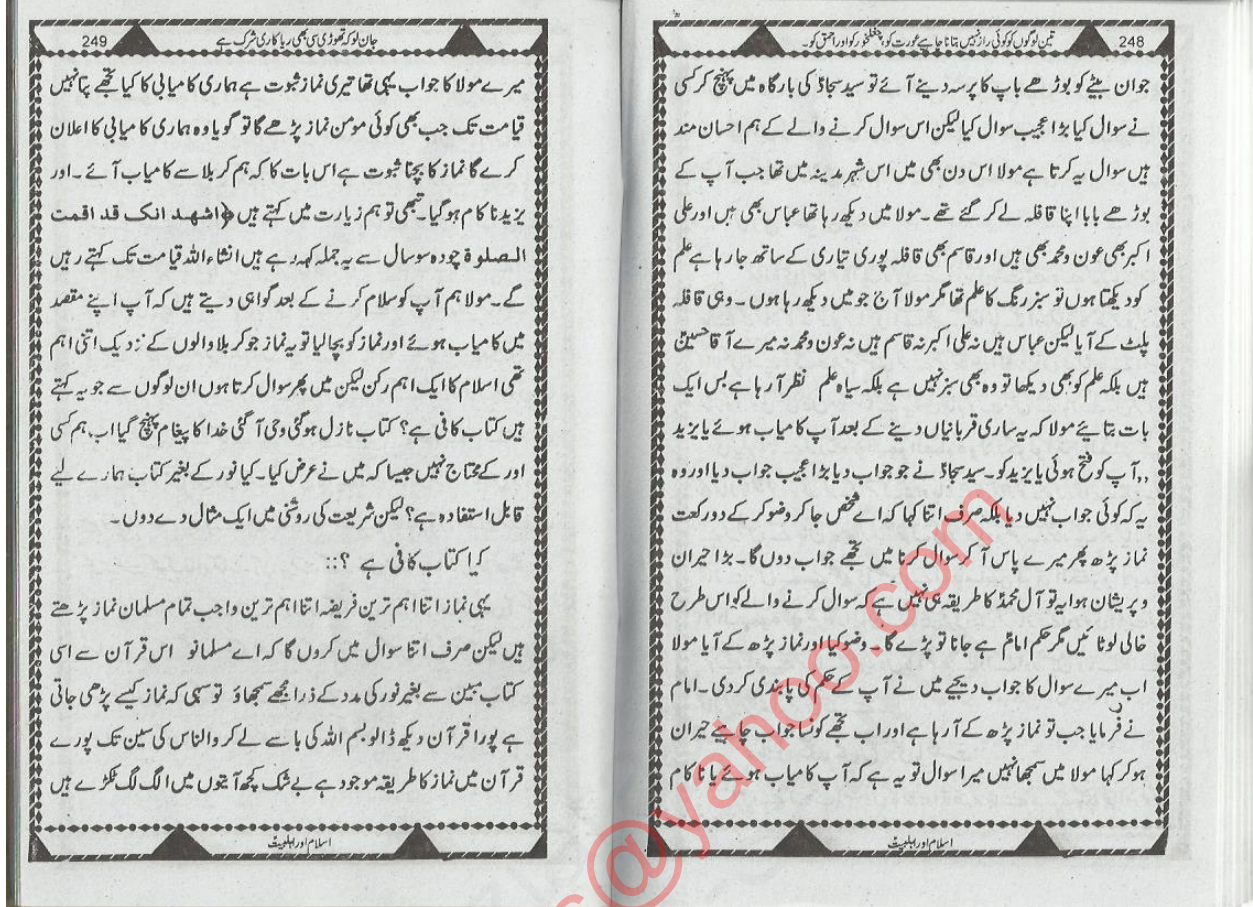 248
تین لوگوں کو کوئی راز نہیں بتانا چاہے عورت کو، چغلخور کو اور احمق کو۔
جوان بیٹے کو بوڑھے باپ کا پرسہ دینے آئے تو سید سجادؑ کی بارگاہ میں پہنچ کر کسی
نے سوال کیا بڑا عجیب سوال کیا لیکن اس سوال کرنے والے کے ہم احسان مند
ہیں سوال یہ کرتا ہے مولا اس دن بھی میں اس شہر مدینہ میں تھا جب آپ کے
بوڑھے بابا اپنا قافلہ لے کر گئے تھے۔ مولا میں دیکھ رہا تھا عباس بھی ہیں اور علی
اکبر بھی عون و محمد بھی ہیں اور قاسم بھی قافلہ پوری تیاری کے ساتھ جا رہا ہے علم
کو دیکھتا ہوں تو سبز رنگ کا علم تھا مگر مولا آج جو میں دیکھ رہا ہوں۔ وہی قافلہ
پلٹ کے آیا لیکن عباس ہیں نہ علی اکبر نہ قاسم ہیں نہ عون و محمد نہ میرے آقا حسینؑ
ہیں بلکہ علم کو بھی دیکھا تو وہ بھی سبز نہیں ہے بلکہ سیاہ علم نظر آ رہا ہے بس ایک
بات بتائیے مولا کہ یہ ساری قربانیاں دینے کے بعد آپ کامیاب ہوئے یا یزید
،،آپ کو فتح ہوئی یا یزید کو۔ سید سجادؑ نے جو جواب دیا بڑا عجیب جواب دیا اور وہ
یہ کہ کوئی جواب نہیں دیا بلکہ صرف اتنا کہا کہ اے شخص جا کر وضو کر کے دو رکعت
نماز پڑھ پھر میرے پاس آ کر سوال کرنا میں تجھے جواب دوں گا۔ بڑا حیران
و پریشان ہوا یہ تو آل محمدؐ کا طریقہ ہی نہیں ہے کہ سوال کرنے والے کو اس طرح
خالی لوٹائیں مگر حکم امامؑ ہے جانا تو پڑے گا۔ وضو کیا اور نماز پڑھ کے آیا مولا
اب میرے سوال کا جواب دیجیے میں نے آپ کے حکم کی پابندی کر دی۔ امام
نے فرمایا جب تو نماز پڑھ کے آ رہا ہے اور اب تجھے کونسا جواب چاہیے حیران
ہو کر کہا مولا میں سمجھا نہیں میرا سوال تو یہ ہے کہ آپ کامیاب ہوئے یا ناکام
اسلام اور اہلبیتؑ
249
جان لو کہ تھوڑی سی بھی ریا کاری شرک ہے
میرے مولا کا جواب یہی تھا تیری نماز ثبوت ہے ہماری کامیابی کا کیا تجھے پتا نہیں
قیامت تک جب بھی کوئی مومن نماز پڑھے گا تو گویا وہ ہماری کامیابی کا اعلان
کرے گا نماز کا بچنا ثبوت ہے اس بات کا کہ ہم کربلا سے کامیاب آئے۔ اور
یزید ناکام ہو گیا۔ تبھی تو ہم زیارت میں کہتے ہیں ﴿اشہد انک قد اقمت
الصلوۃ چودہ سو سال سے یہ جملہ کہہ رہے ہیں انشاء اللہ قیامت تک کہتے رہیں
گے۔ مولا ہم آپ کو سلام کرنے کے بعد گواہی دیتے ہیں کہ آپ اپنے مقصد
میں کامیاب ہوئے اور نماز کو بچا لیا تو یہ نماز جو کربلا والوں کے نزدیک اتنی اہم
تھی اسلام کا ایک اہم رکن لیکن میں پھر سوال کرتا ہوں ان لوگوں سے جو یہ کہتے
ہیں کتاب کافی ہے؟ کتاب نازل ہو گئی وحی آ گئی خدا کا پیغام پہنچ گیا اب ہم کسی
اور کے محتاج نہیں جیسا کہ میں نے عرض کیا۔ کیا نور کے بغیر کتاب ہمارے لیے
قابل استفادہ ہے؟ لیکن شریعت کی روشنی میں ایک مثال دے دوں۔
کیا کتاب کافی ہے ؟::
یہی نماز اتنا اہم ترین فریضہ اتنا اہم ترین واجب تمام مسلمان نماز پڑھتے
ہیں لیکن صرف اتنا سوال میں کروں گا کہ اے مسلمانو اس قرآن سے اسی
کتاب مبین سے بغیر نور کی مدد کے ذرا مجھے سمجھاؤ تو سہی کہ نماز کیسے پڑھی جاتی
ہے پورا قرآن دیکھ ڈالو بسم اللہ کی با سے لے کر والناس کی سین تک پورے
قرآن میں نماز کا طریقہ موجود ہے بے شک کچھ آیتوں میں الگ الگ ٹکڑے ہیں
اسلام اور اہلبیتؑ
s@yahoo.com